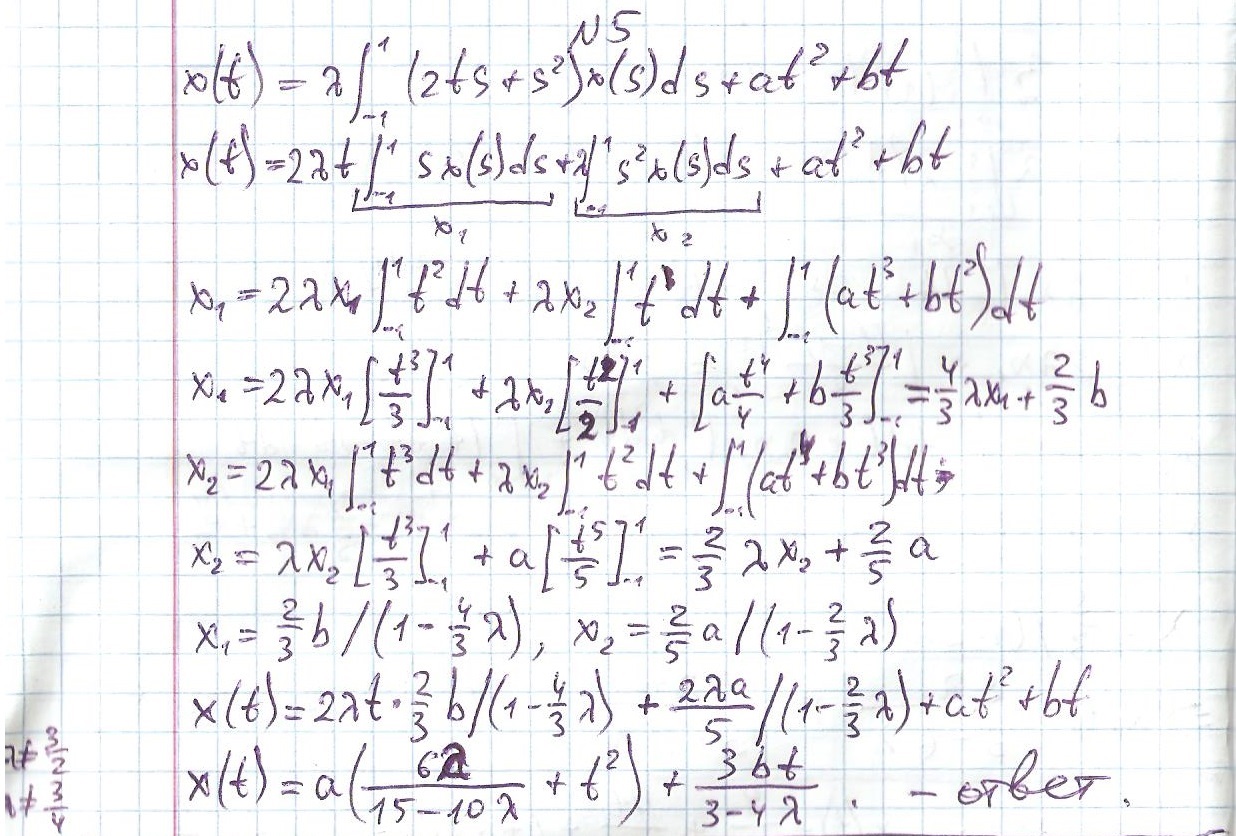 N5
x(t) = λ∫₋₁¹ (2ts + s²)x(s)ds + at² + bt
x(t) = 2λt ∫₋₁¹ s x(s)ds + λ∫₋₁¹ s² x(s)ds + at² + bt
x₁ x₂
x₁ = 2λx₁ ∫₋₁¹ t² dt + λx₂ ∫₋₁¹ t dt + ∫₋₁¹ (at³ + bt²)dt
x₁ = 2λx₁ [t³/3]₋₁¹ + λx₂ [t²/2]₋₁¹ + [a t⁴/4 + b t³/3]₋₁¹ = 4/3 λx₁ + 2/3 b
x₂ = 2λx₁ ∫₋₁¹ t³ dt + λx₂ ∫₋₁¹ t² dt + ∫₋₁¹ (at⁴ + bt³)dt;
x₂ = λx₂ [t³/3]₋₁¹ + a [t⁵/5]₋₁¹ = 2/3 λx₂ + 2/5 a
x₁ = 2/3 b / (1 - 4/3 λ), x₂ = 2/5 a / (1 - 2/3 λ)
x(t) = 2λt · 2/3 b / (1 - 4/3 λ) + 2λa/5 / (1 - 2/3 λ) + at² + bt
λ ≠ 3/2
λ ≠ 3/4
x(t) = a(6λ/(15 - 10λ) + t²) + 3bt/(3 - 4λ). - ответ.